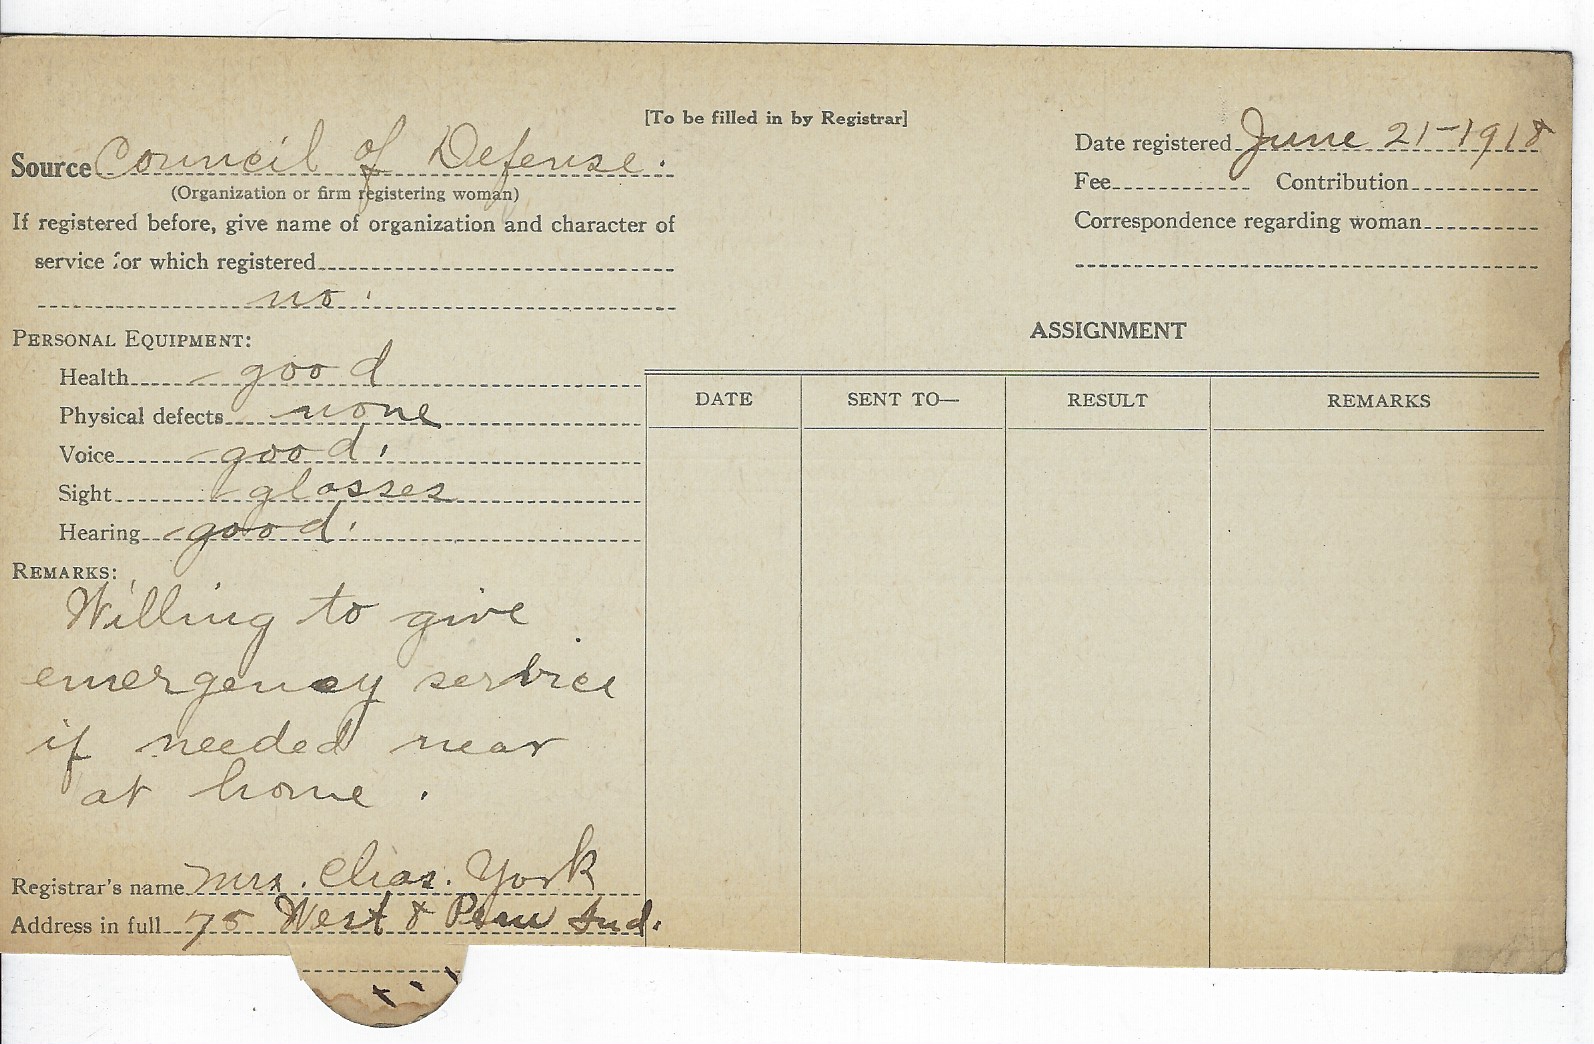 [To be filled in by Registrar]
Source Council of Defense.
(Organization or firm registering woman)
If registered before, give name of organization and character of
service for which registered
no.
Date registered June 21-1918
Fee Contribution
Correspondence regarding woman
PERSONAL EQUIPMENT:
Health good
Physical defects none
Voice good.
Sight glasses
Hearing good.
REMARKS:
Willing to give
emergency service
if needed near
at home.
Registrar's name Mrs. Chas. York
Address in full 75 West 8 Peru Ind.
ASSIGNMENT
DATE SENT TO— RESULT REMARKS